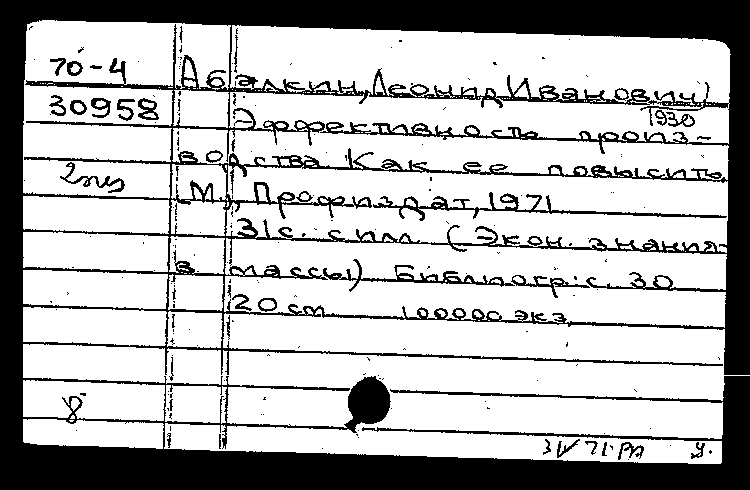 70-4 Абалкин, Леонид Иванович)
30958 1930
Эффективность произ-
водства Как ее повысить
М., Профиздат, 1971
31с. с илл. (Экон. знания-
в массы) Библиогр: с. 30
20 cm 100000 экз.
8
71. РА У.